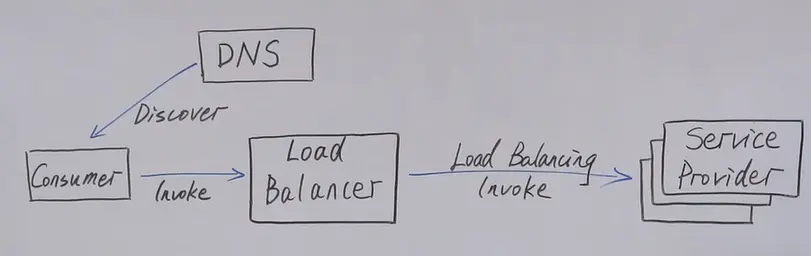 DNS
Discover
Consumer
Invoke
Load
Balancer
Load Balancing
Invoke
Service
Provider